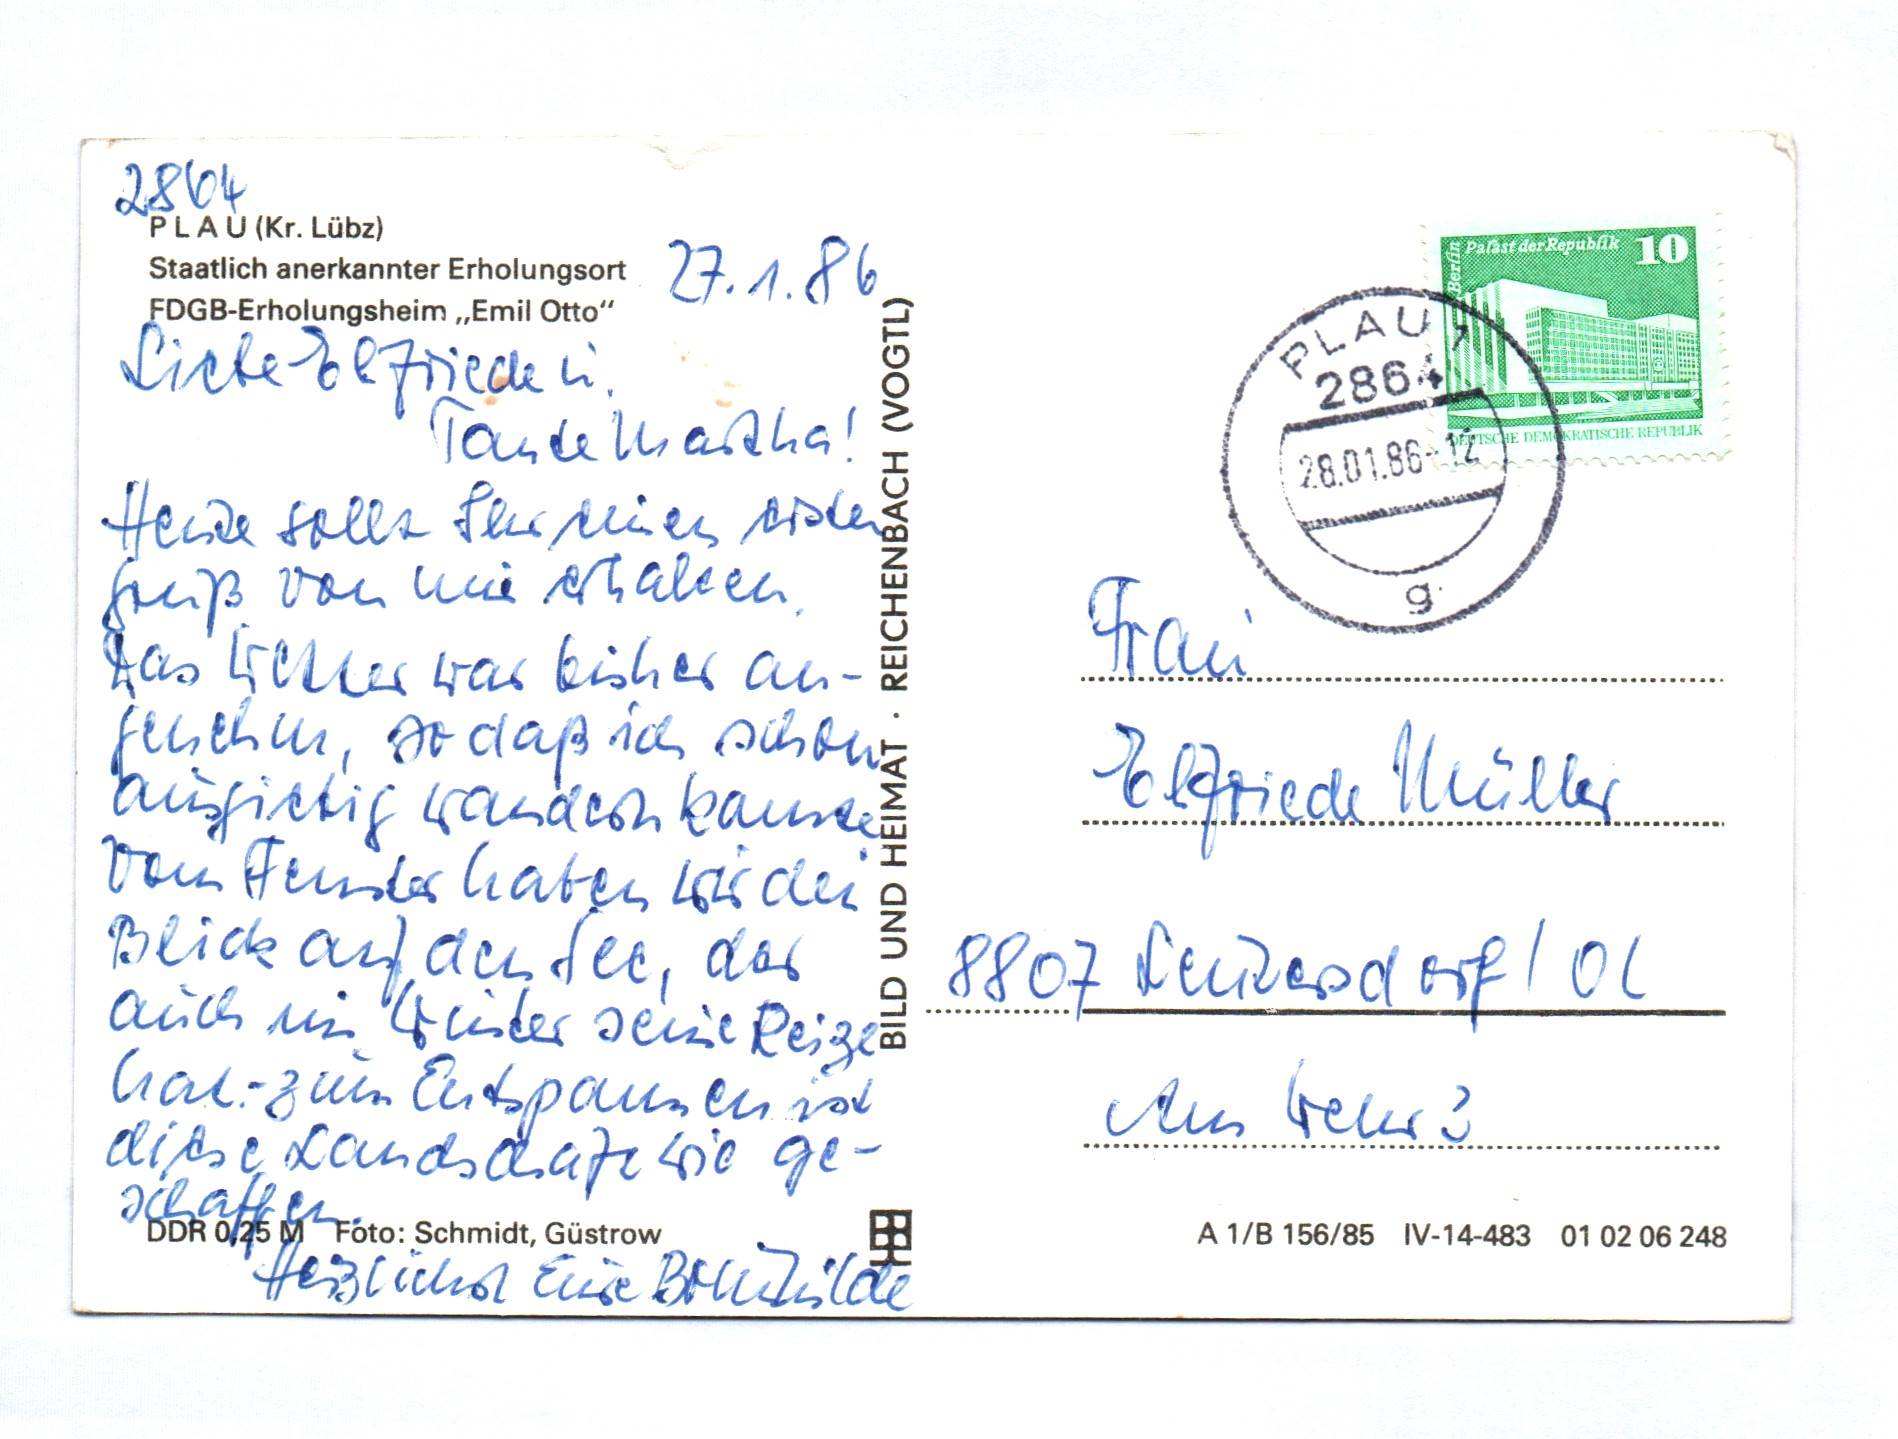 2864
PLAU (Kr. Lübz)
Staatlich anerkannter Erholungsort
FDGB-Erholungsheim „Emil Otto“
27.1.86
Liebe Elfriede u.
Tante Martha!
Heute sollt Ihr einen ersten
Gruß von mir erhalten.
Das Wetter war bisher an-
genehm, so daß ich schon
ausgiebig wandern konnte
Vom Fenster haben wir den
Blick auf den See, der
auch im Winter seine Reize
hat. - zum Entspannen ist
diese Landschaft wie ge-
schaffen.
DDR 0,25 M Foto: Schmidt, Güstrow
Herzlichst Eure
BILD UND HEIMAT · REICHENBACH (VOGTL)
Berlin
Palast der Republik 10
DEUTSCHE DEMOKRATISCHE REPUBLIK
PLAU 1
2864
28.01.86-12
g
Frau
Elfriede Müller
8807 Leutersdorf / OL
Am Wehr 3
A 1/B 156/85 IV-14-483 01 02 06 248